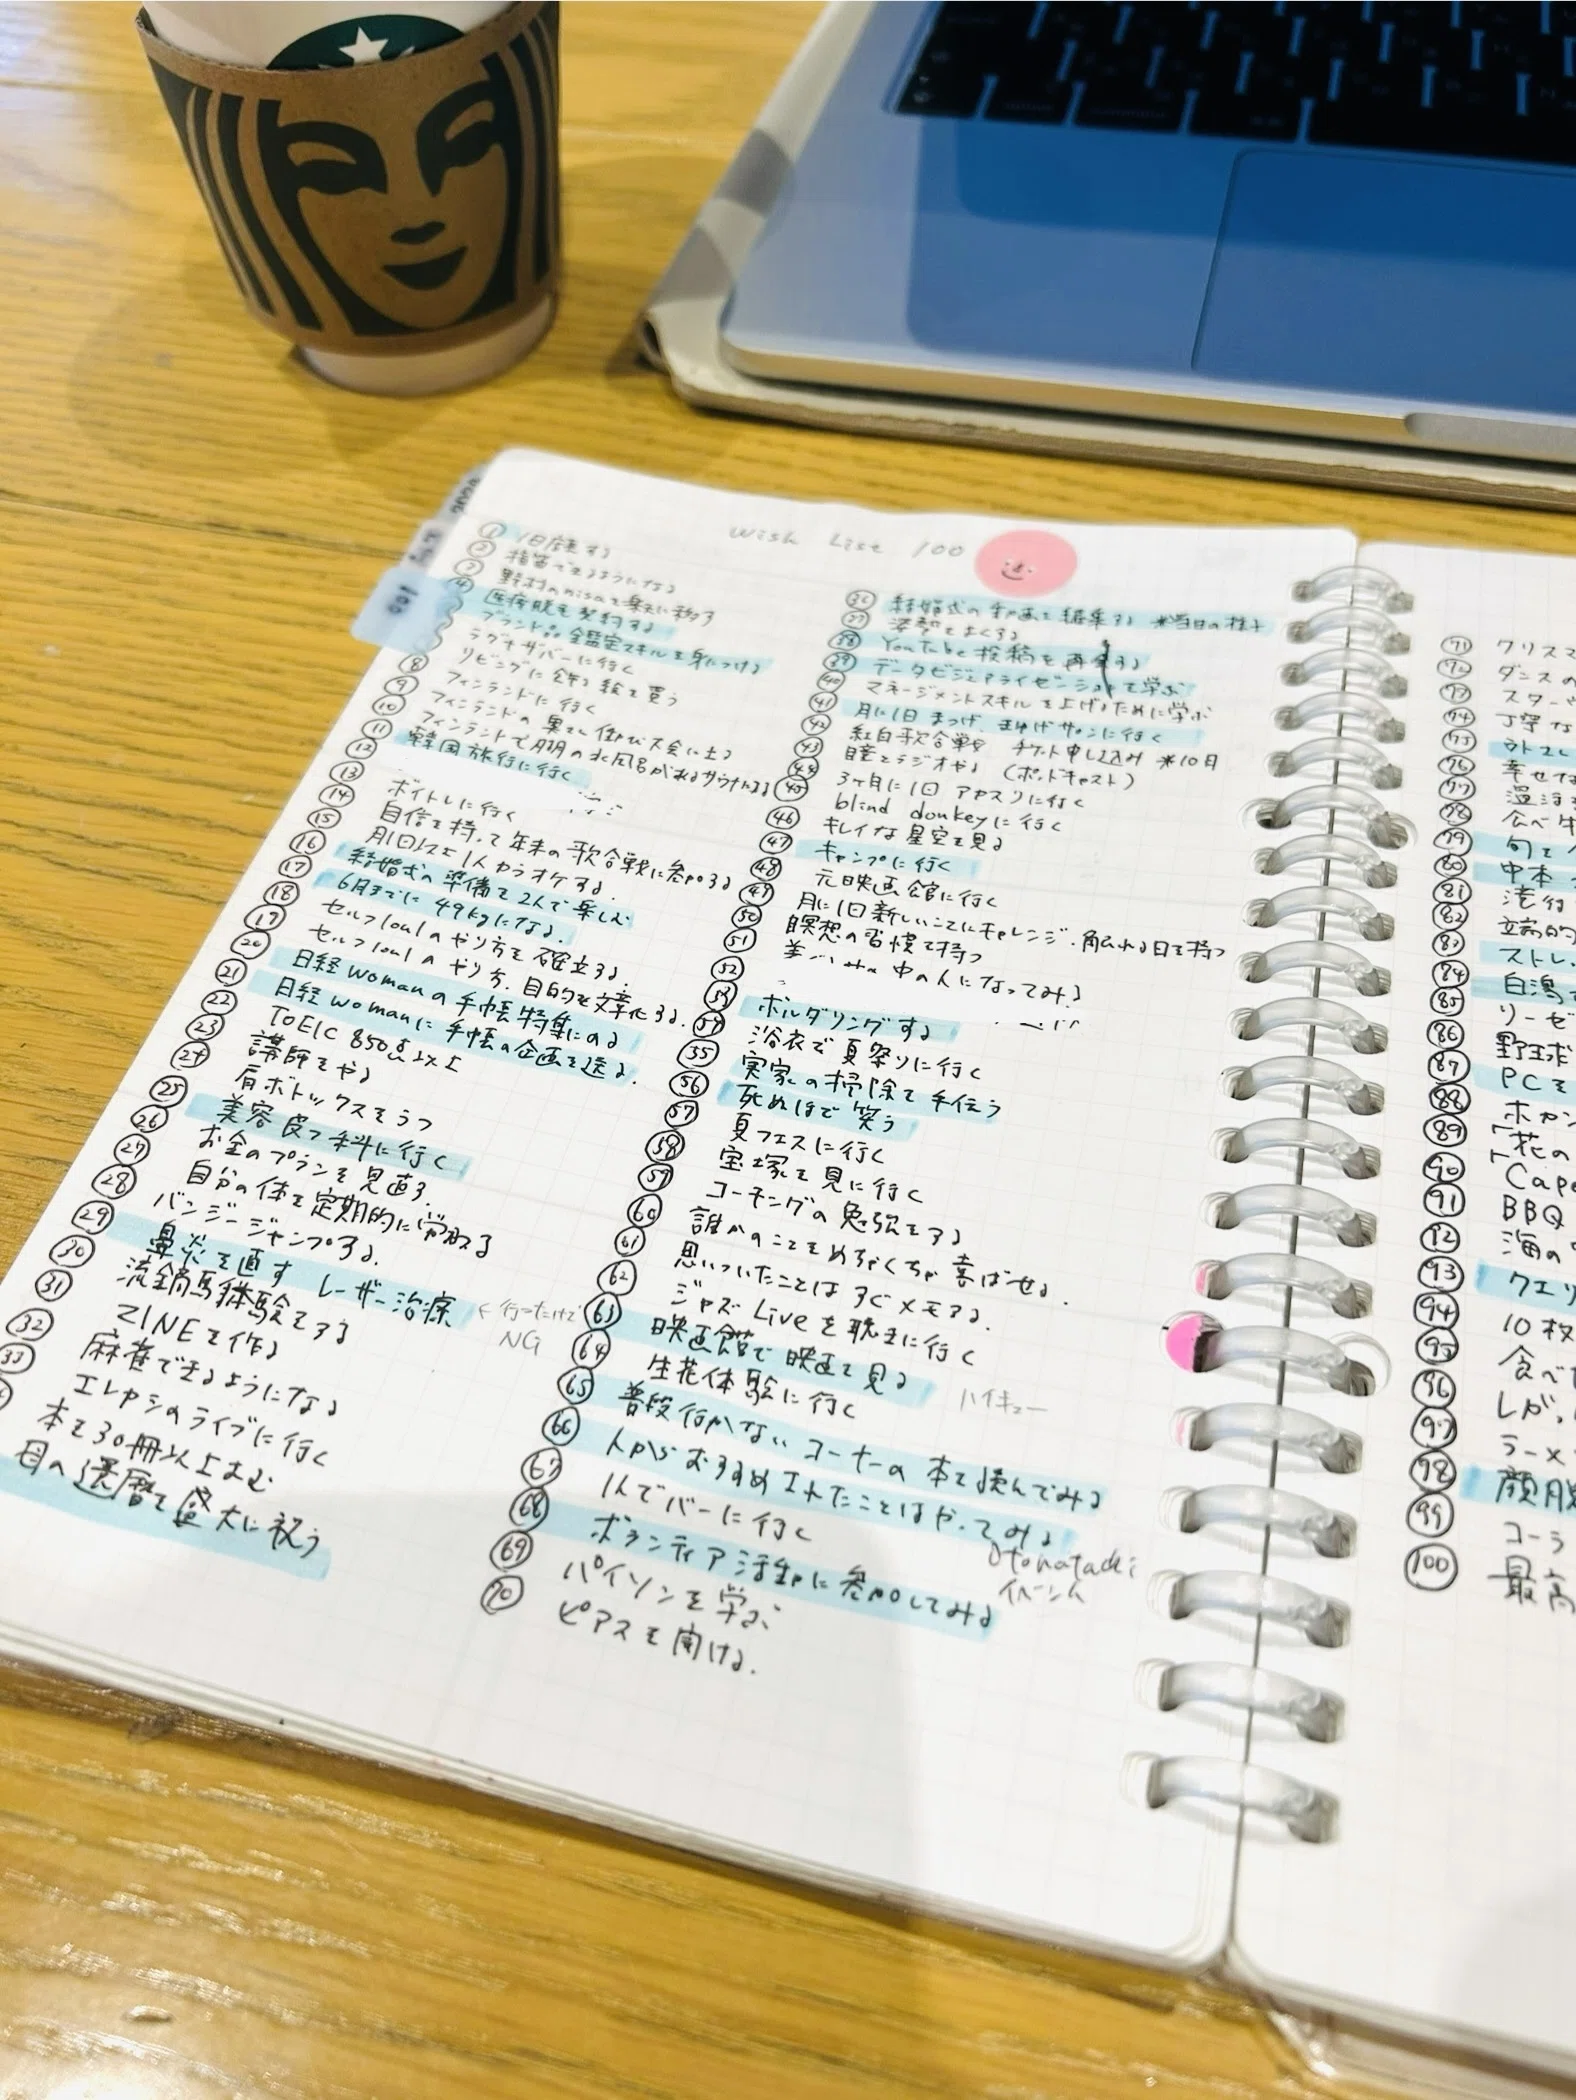 Wish List 100
100
① 1日断食する
② 指笛できるようになる
③ 野村のnisaを楽天に移す
④ 医療脱毛契約する
ブランド品鑑定スキルを身につける
ラグナサバーに行く
リビングに飾る絵を買う
⑧ フィンランドに行く
⑨ フィンランドの
⑩ フィンランドで
⑪ 韓国旅行に行く
⑫
⑬ ボイトレに行く
⑭ 自信を持って年末の歌合戦に参加する
⑮ 月1回は1人カラオケする
⑯ 結婚式の準備を2人で楽しむ
⑰ 6月までに49kgになる.
⑱ セルフ1on1のやり方を確立する.
⑲ セルフ1on1のやり方、目的を文章化する.
⑳ 日経womanの手帳特集にのる
㉑ 日経womanに手帳の企画を送る.
㉒ TOEIC 850点以上
㉓ 講師をやる
㉔ 肩ボトックスをうつ
㉕ 美容皮フ科に行く
㉖ お金のプランを見直す.
㉗ 自分の体を定期的に労わる
㉘ バンジージャンプする.
㉙ 鼻炎を直す レーザー治療
← 行ったけど
NG
㉚ 流鏑馬体験をする
㉛ ZINEを作る
㉜ 麻雀できるようになる
㉝ エレカシのライブに行く
本を30冊以上よむ
母の還暦を盛大に祝う
㊱ 結婚式の動画を編集する ※当日の様子
㊲ 姿勢をよくする
㊳ YouTube投稿を再開する
㊴ データビジュアライゼーションを学ぶ
㊵ マネージメントスキルを上げるために学ぶ
㊶ 月に1日まつげ、まゆげサロンに行く
㊷ 紅白歌合戦 チケット申し込み ※10月
㊸ 自主ラジオやる (ポッドキャスト)
㊹ 3ヶ月に1回アカスリに行く
㊺ blind donkeyに行く
㊻ キレイな星空を見る
㊼ キャンプに行く
㊽ 元映画館に行く
㊾ 月に1日新しいことにチャレンジ、触れる日を持つ
㊿ 瞑想の習慣を持つ
51 中の人になってみる
52
53 ボルダリングする
54 浴衣で夏祭りに行く
55 実家の掃除を手伝う
56 死ぬほど笑う
57 夏フェスに行く
58 宝塚を見に行く
59 コーチングの勉強をする
60 誰かのことをめちゃくちゃ喜ばせる.
61 思いついたことはすぐメモする.
62 ジャズLiveを聴きに行く
63 映画館で映画を見る
ハイキュー
64 生花体験に行く
65 普段行かないコーナーの本を読んでみる
66 人からおすすめされたことはやってみる
67 1人でバーに行く
68 ボランティア活動に参加してみる
otonatachi
イベント
69 パイソンを学ぶ
70 ピアスを開ける.
71 クリスマ
72 ダンスの
73 スター
74 丁寧な
75
76 幸せな
77
78 食べ
79 旬を
80 中本
81 流行
82 定期的
83 ストレ
84 白湯
85 リーゼ
86 野球
87 PCを
88 ホカン
89 「花の
90 「Cape
91 BBQ
92 海の
93 クエリ
94 10枚
95 食べた
96 レが
97 ラーメン
98 顔脱
99 コーラ
100 最高